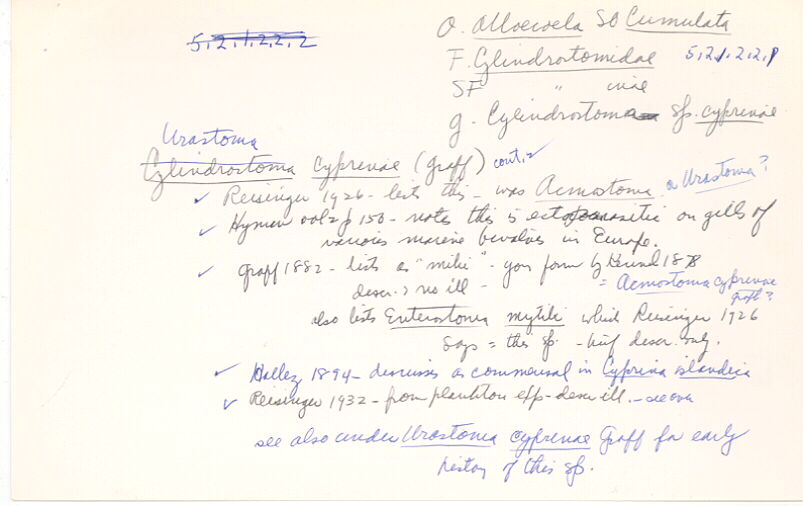 5.2.1.2.2.2
O. Alloeocoela SO Cumulata
F. Cylindrostomidae 5.2.1.2.2.1
SF " inae
g. Cylindrostoma sp. cyprinae
Urastoma
Cylindrostoma cyprinae (Graff) cont. 2
✓ Reisinger 1926 - lists this - was Acmostoma or Urastoma?
✓ Hyman vol 2 p 150 - notes this is ectoparasitic on gills of
various marine bivalves in Europe.
✓ Graff 1882 - lists as "milii" - form by 1878
descr. & no ill - = Acmostoma cyprinae
Graff?
also lists Enterostoma mytili which Reisinger 1926
says = this sp. - brief descr. only.
✓ Hallez 1894 - discusses as commensal in Cyprina islandica
✓ Reisinger 1932 - from plankton exp - descr ill. - see over
see also under Urastoma cyprinae Graff for early
history of this sp.